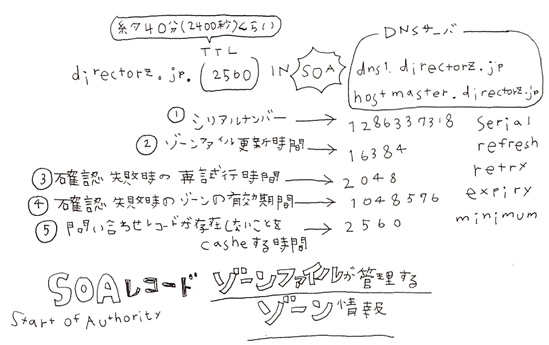 約40分(2400秒)くらい
TTL
DNSサーバ
directorz.jp. (2560) IN SOA dns1.directorz.jp
hostmaster.directorz.jp
① シリアルナンバー → 1286337318 serial
② ゾーンファイル更新時間 → 16384 refresh
③ 確認失敗時の再試行時間 → 2048 retry
④ 確認失敗時のゾーンの有効期間 → 1048576 expiry
⑤ 問い合わせレコードが存在しないことを → 2560 minimum
casheする時間
SOAレコード ゾーンファイルが管理する
Start of Authority ゾーン情報